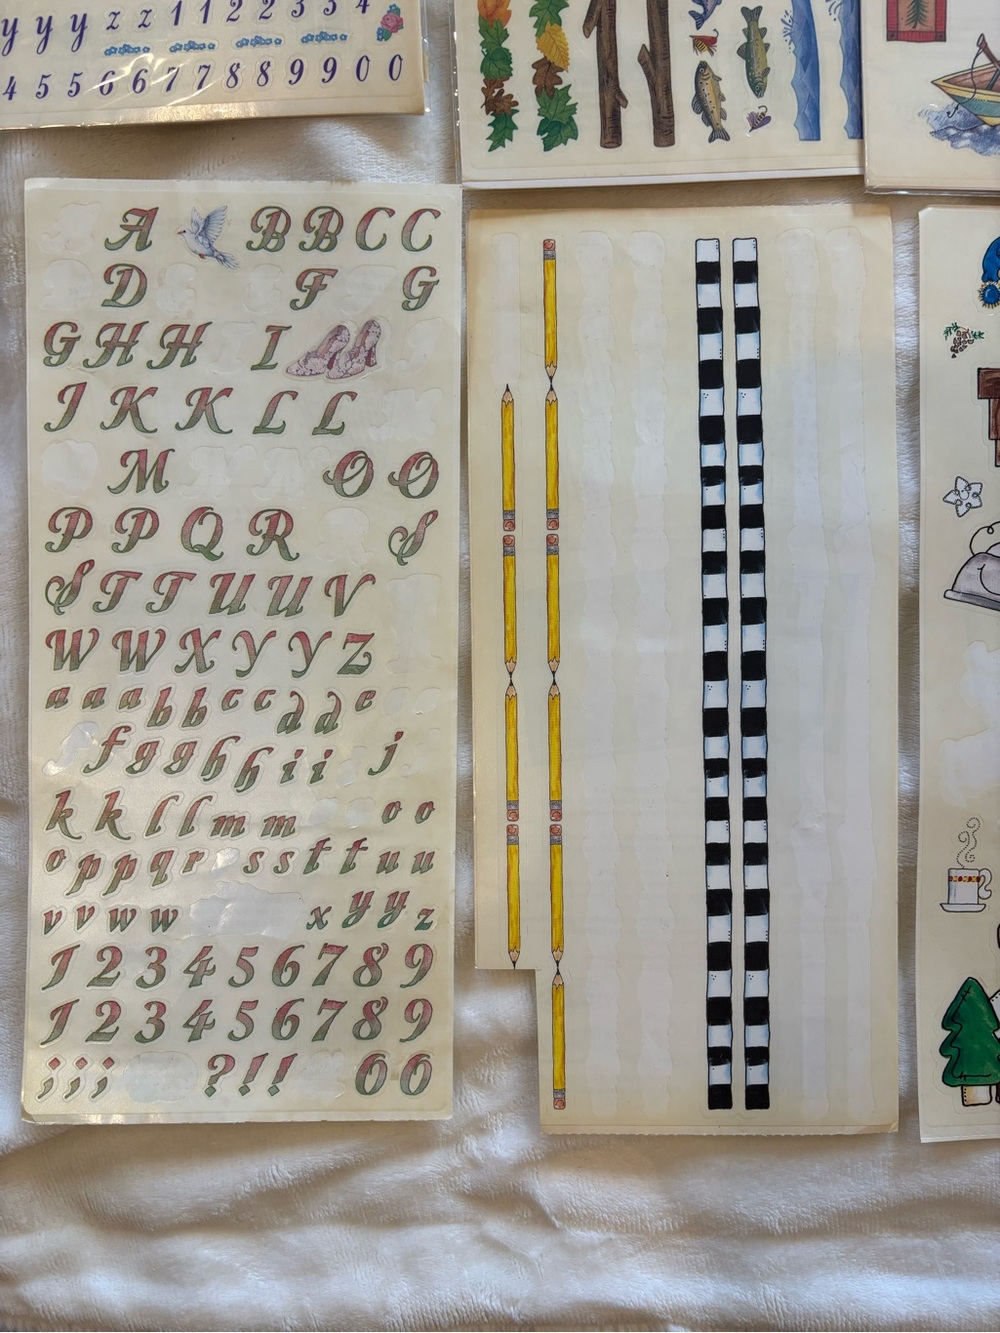 y y y z z 1 1 2 2 3 3 4
4 5 5 6 6 7 7 8 8 9 9 0 0
A B B C C
D F G
G H H I
J K K L L
M O O
P P Q R S
S T T U U V
W W X Y Y Z
a a a b b c c d d e
f g g h h i i j
k k l l m m o o
o p p q r s s t t u u
v v w w x y y z
1 2 3 4 5 6 7 8 9
1 2 3 4 5 6 7 8 9
; ; ; ? ! ! 0 0